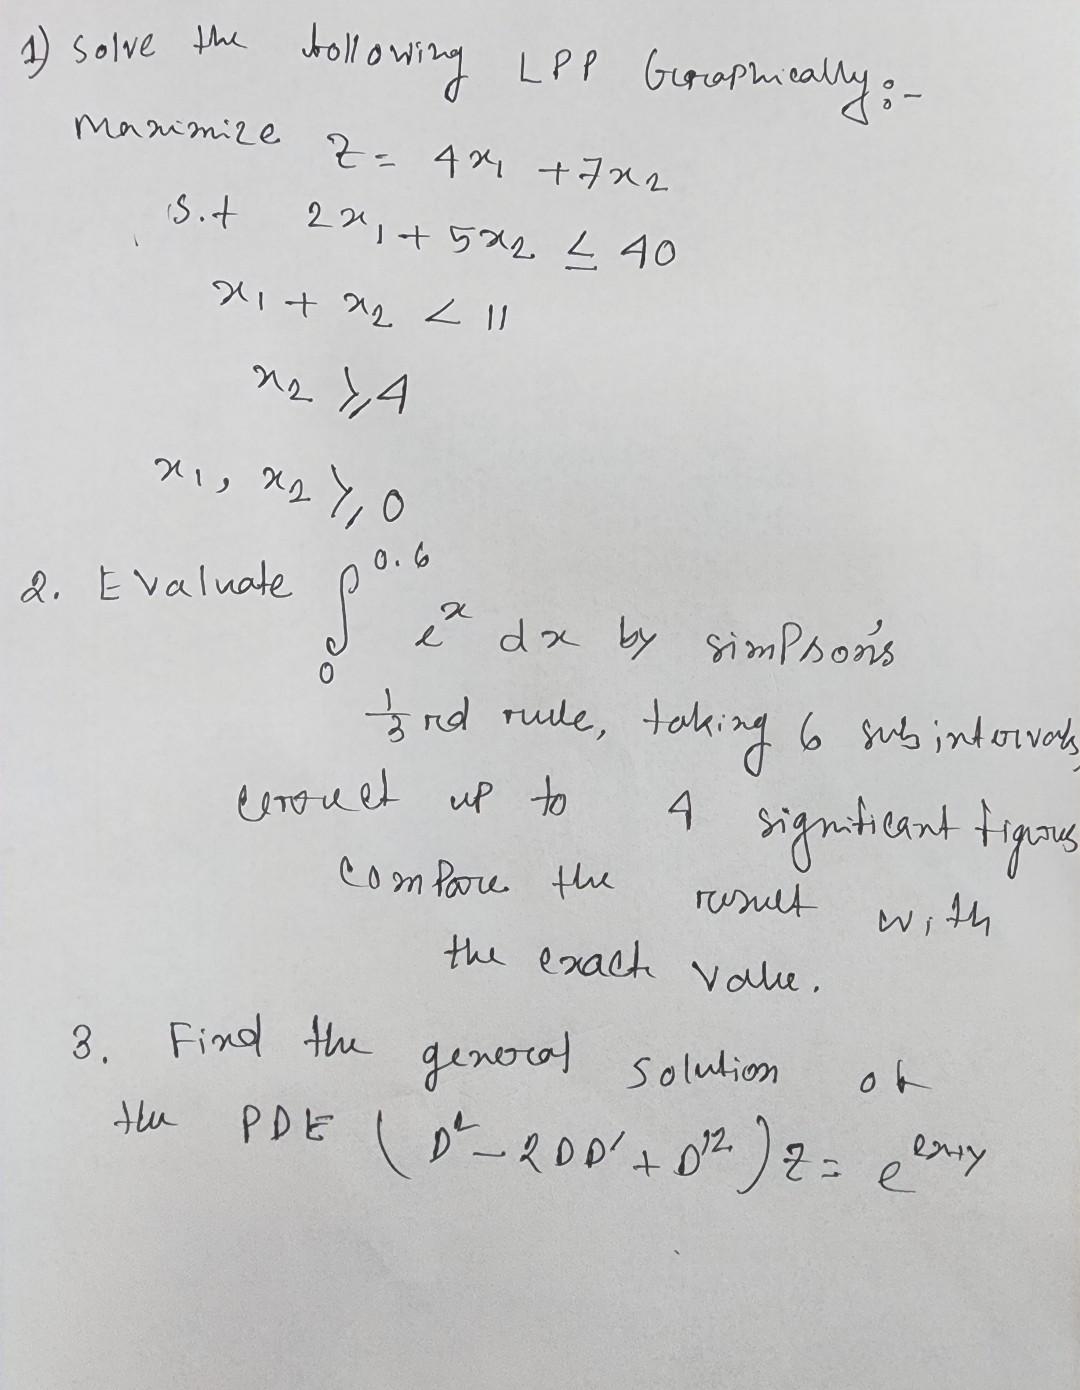 1) Solve the following LPP Graphically:-
Maximize Z = 4x₁ + 7x₂
S.t 2x₁ + 5x₂ ≤ 40
x₁ + x₂ < 11
x₂ ≥ 4
x₁, x₂ ≥ 0
2. Evaluate ∫₀^0.6 e^x dx by simpson's
1/3 rd rule, taking 6 sub intervals,
correct up to 4 significant figures
compare the result with
the exact value.
3. Find the general solution of
the PDE (D² - 2DD' + D'²) Z = e^